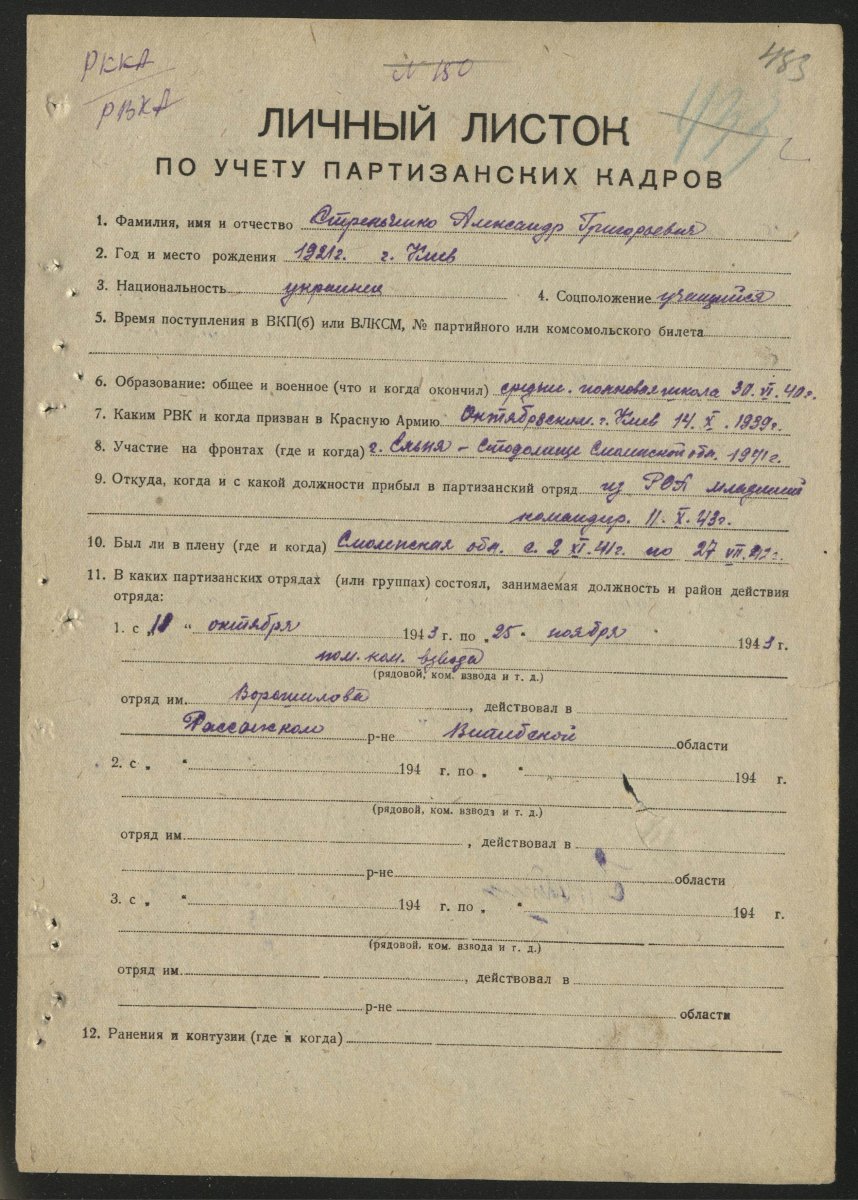 РККА
РВКА
N 180
483
433
ЛИЧНЫЙ ЛИСТОК
ПО УЧЕТУ ПАРТИЗАНСКИХ КАДРОВ
1. Фамилия, имя и отчество Стреньченко Александр Григорьевич
2. Год и место рождения 1921г. г. Киев
3. Национальность украинец 4. Соцположение учащийся
5. Время поступления в ВКП(б) или ВЛКСМ, № партийного или комсомольского билета
6. Образование: общее и военное (что и когда окончил) средн. полковая школа 30. VI. 40г.
7. Каким РВК и когда призван в Красную Армию Октябрьском г. Киев 14. X. 1939г.
8. Участие на фронтах (где и когда) г. Ельня – Стодолище Смоленской обл. 1941г.
9. Откуда, когда и с какой должности прибыл в партизанский отряд из РОА младший
командир. 11. X. 43г.
10. Был ли в плену (где и когда) Смоленская обл. с 2 XI. 41г. по 27 VII. 42г.
11. В каких партизанских отрядах (или группах) состоял, занимаемая должность и район действия
отряда:
1. с „11 “ октября 1943 г. по „25 “ ноября 1943 г.
пом. ком. взвода
(рядовой, ком. взвода и т. д.)
отряд им. Ворошилова, действовал в
Россонском р-не Витебской области
2. с „ “ 194 г. по „ “ 194 г.
(рядовой, ком. взвода и т. д.)
отряд им. , действовал в
р-не области
3. с „ “ 194 г. по „ “ 194 г.
(рядовой, ком. взвода и т. д.)
отряд им. , действовал в
р-не области
12. Ранения и контузии (где и когда)